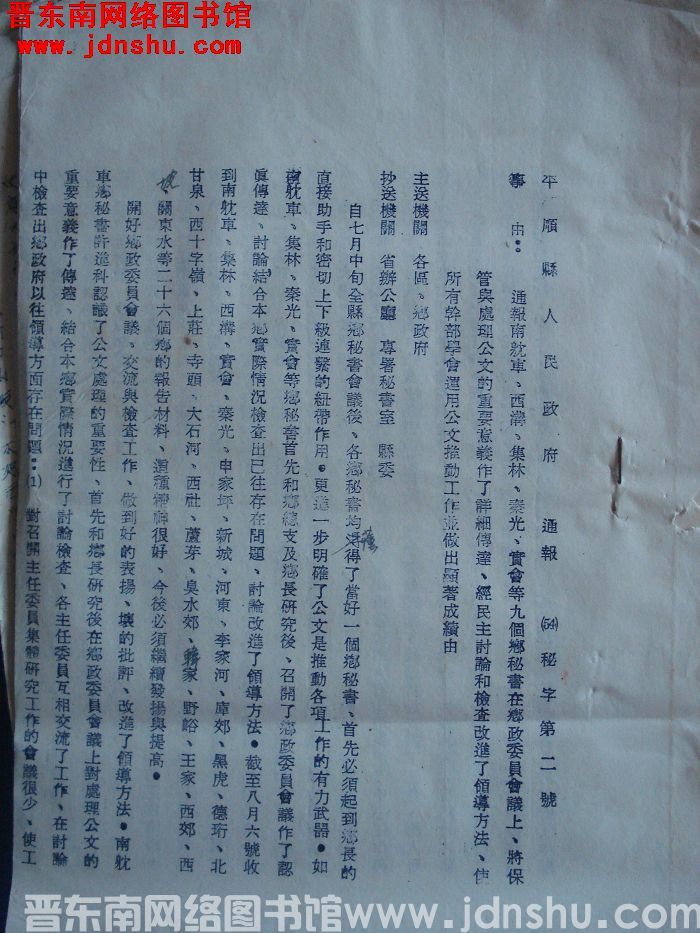 晋东南网络图书馆
www.jdnshu.com
平順縣人民政府 通報 (54)秘字第二號
事 由： 通報南躭車、西溝、集林、秦光、實會等九個鄉秘書在鄉政委員會議上、將保
管與處理公文的重要意義作了詳細傳達、經民主討論和檢查改進了領導方法、使
所有幹部學會運用公文推動工作並做出顯著成績由
主送機關 各區、鄉政府
抄送機關 省辦公廳 專署秘書室 縣委
自七月中旬全縣鄉秘書會議後、各鄉秘書均懂得了當好一個鄉秘書、首先必須起到鄉長的
直接助手和密切上下級連繫的紐帶作用。更進一步明確了公文是推動各項工作的有力武器。如
南躭車、集林、秦光、實會等鄉秘書首先和鄉總支及鄉長研究後、召開了鄉政委員會議作了認
眞傳達、討論結合本鄉實際情况檢查出已往存在問題、討論改進了領導方法。截至八月六號收
到南躭車、集林、西溝、實會、秦光、申家坪、新城、河東、李家河、庫郊、黑虎、德珩、北
甘泉、西十字嶺、上莊、寺頭、大石河、西社、蘆芽、臭水郊、家、野峪、王家、西郊、西
坡、關東水等二十六個鄉的報告材料、這種精神很好、今後必須繼續發揚與提高。
開好鄉政委員會議、交流與檢查工作、做到好的表揚、壞的批評、改進了領導方法。南躭
車鄉秘書許進科認識了公文處理的重要性、首先和鄉長研究後在鄉政委員會議上對處理公文的
重要意義作了傳達、結合本鄉實際情况進行了討論檢查、各主任委員互相交流了工作、在討論
中檢查出鄉政府以往領導方面存在問題：(1) 對召開主任委員集體研究工作的會議很少、使工
晋东南网络图书馆 www.jdnshu.com